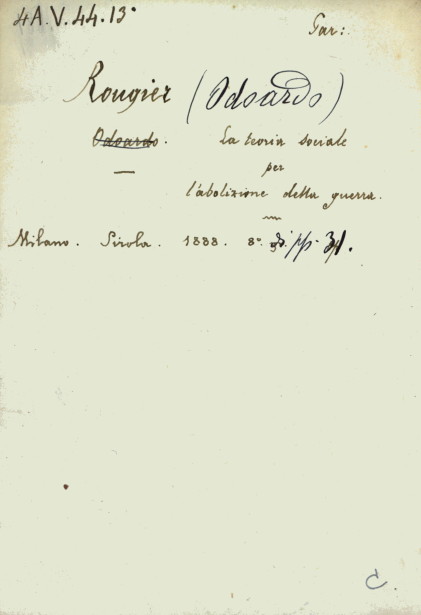 4 A.V. 44. 13
Gar:
Rougier (Odoardo)
Odoardo. La teoria sociale
per
l'abolizione della guerra.
Milano. Sirola. 1888. 8° di pp. 31.
C.